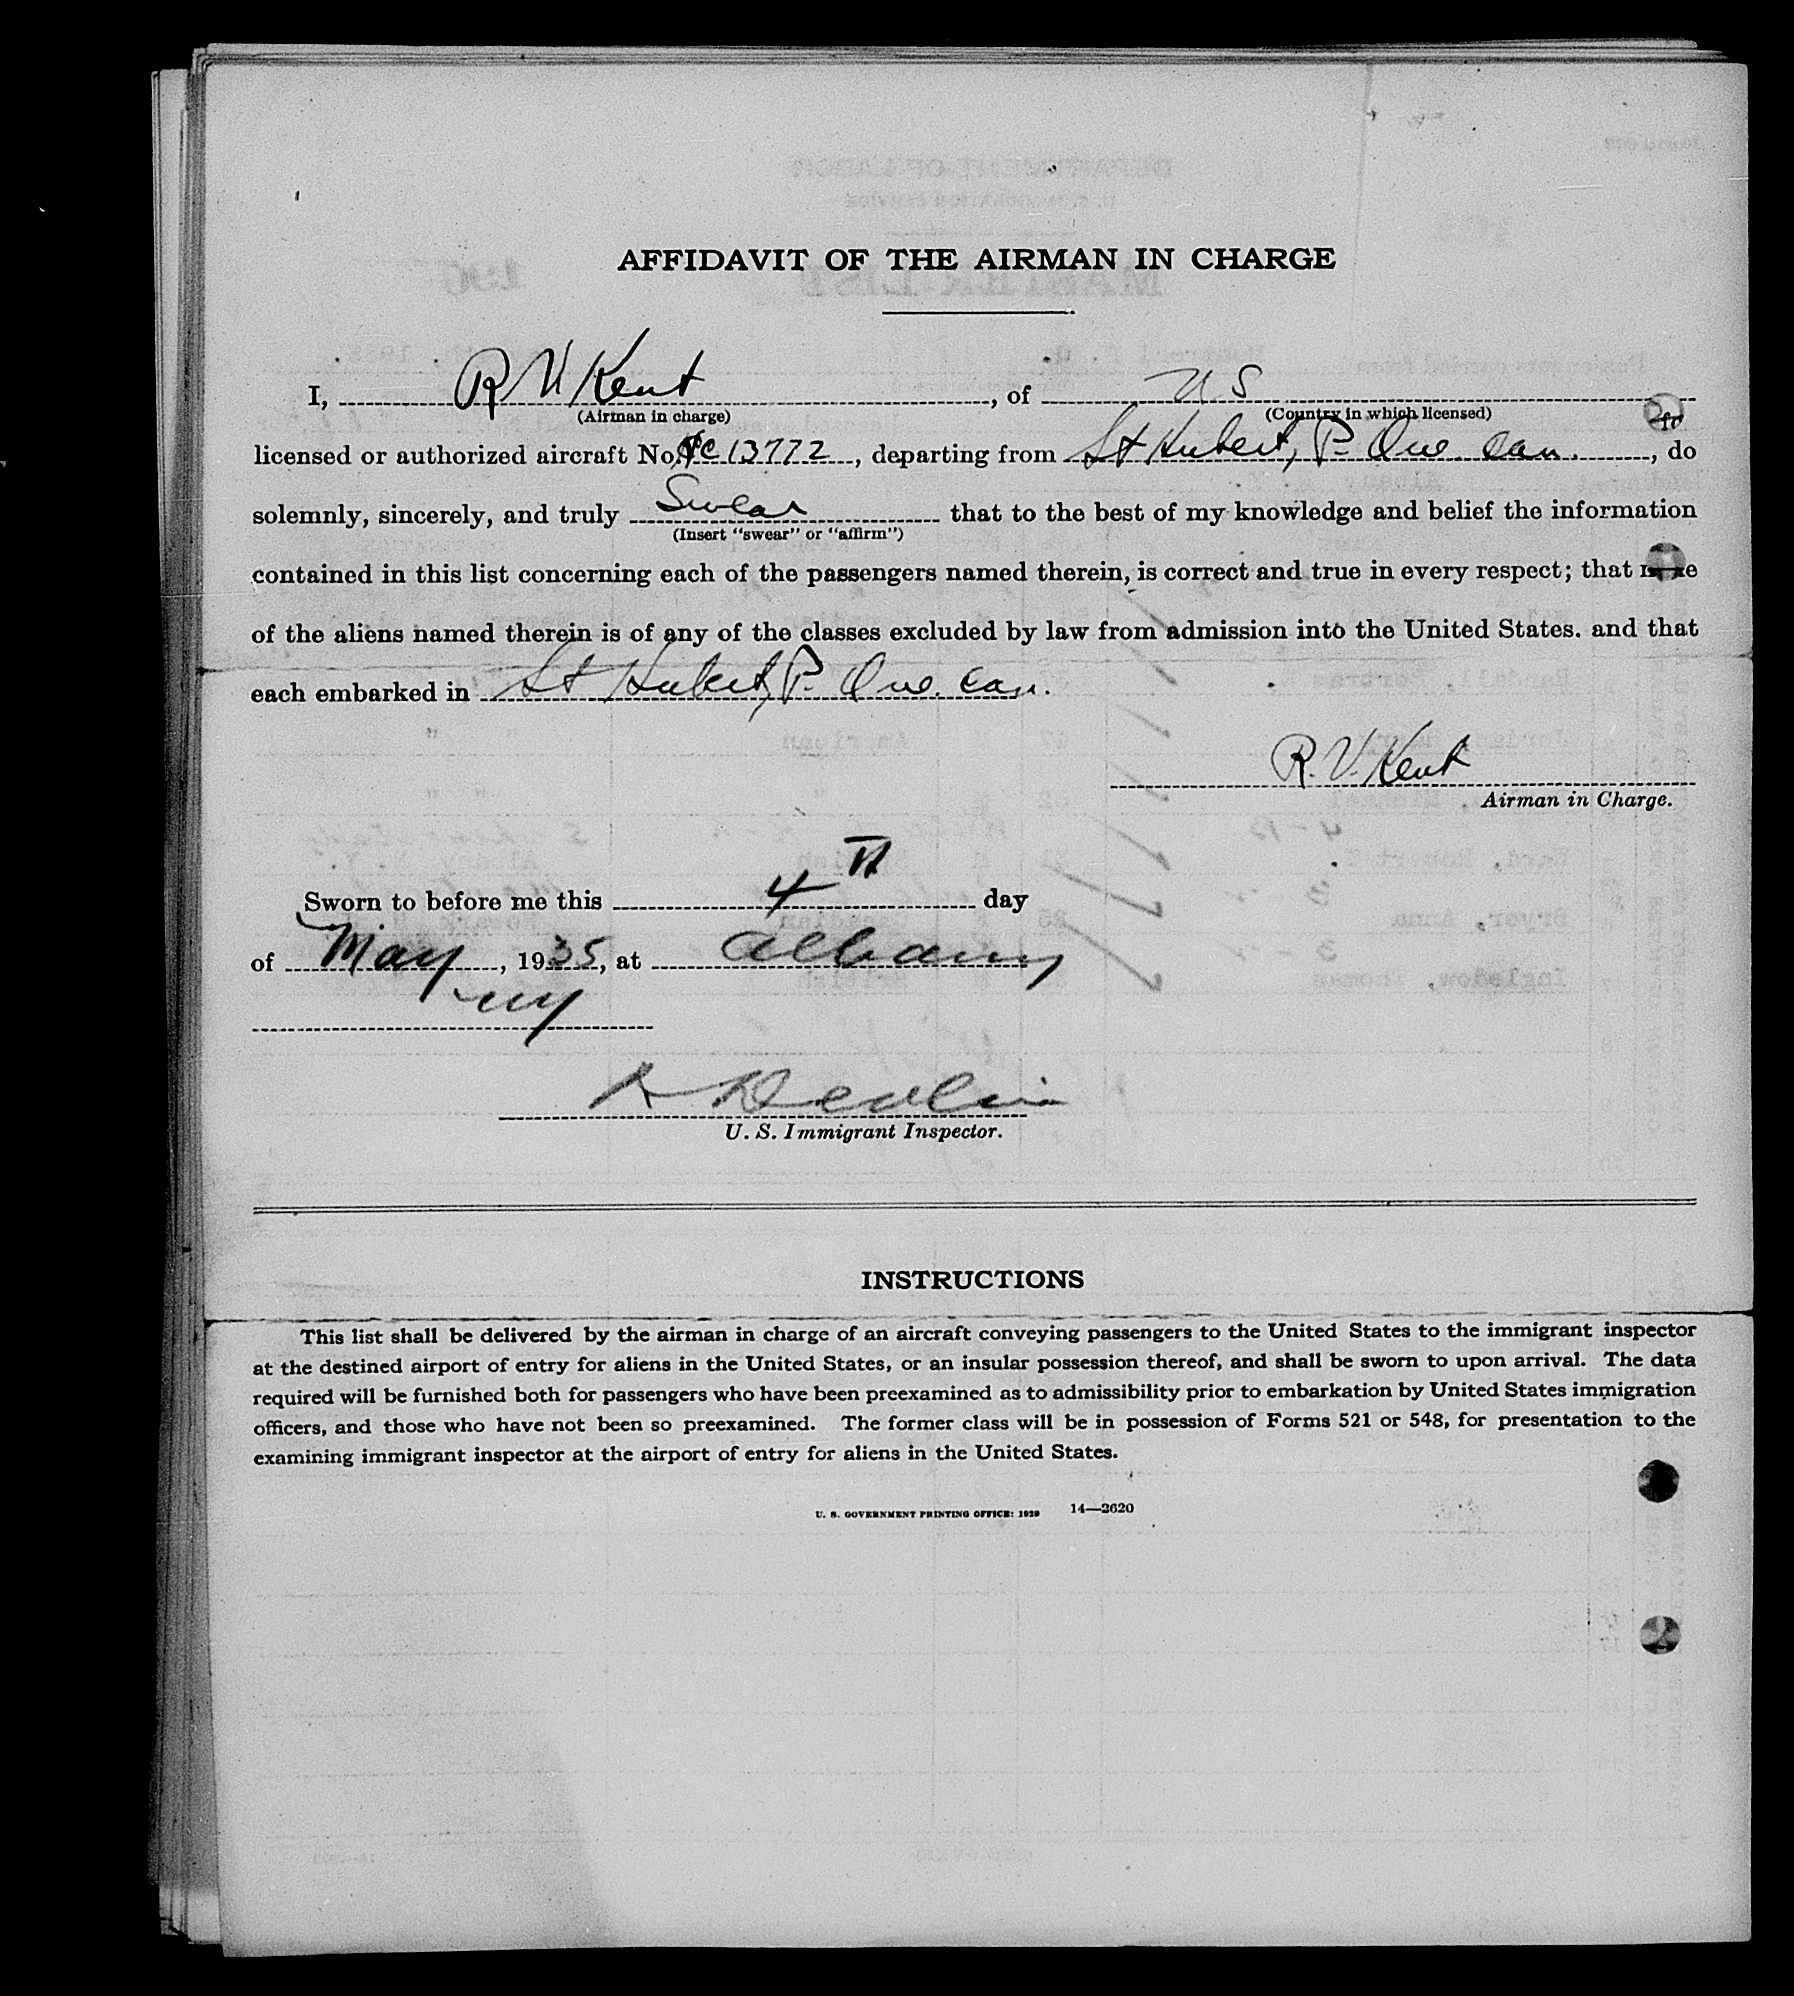 AFFIDAVIT OF THE AIRMAN IN CHARGE
I, R V Kent, of U.S
(Airman in charge) (Country in which licensed)
licensed or authorized aircraft No. NC 13772, departing from St Hubert, P. Que. Can., do
solemnly, sincerely, and truly Swear that to the best of my knowledge and belief the information
(Insert "swear" or "affirm")
contained in this list concerning each of the passengers named therein, is correct and true in every respect; that none
of the aliens named therein is of any of the classes excluded by law from admission into the United States. and that
each embarked in St Hubert, P. Que. Can.
R. V. Kent
Airman in Charge.
Sworn to before me this 4TH day
of May, 1935, at Albany
NY
Devlin
U. S. Immigrant Inspector.
INSTRUCTIONS
This list shall be delivered by the airman in charge of an aircraft conveying passengers to the United States to the immigrant inspector
at the destined airport of entry for aliens in the United States, or an insular possession thereof, and shall be sworn to upon arrival. The data
required will be furnished both for passengers who have been preexamined as to admissibility prior to embarkation by United States immigration
officers, and those who have not been so preexamined. The former class will be in possession of Forms 521 or 548, for presentation to the
examining immigrant inspector at the airport of entry for aliens in the United States.
U. S. GOVERNMENT PRINTING OFFICE: 1929 14—2620